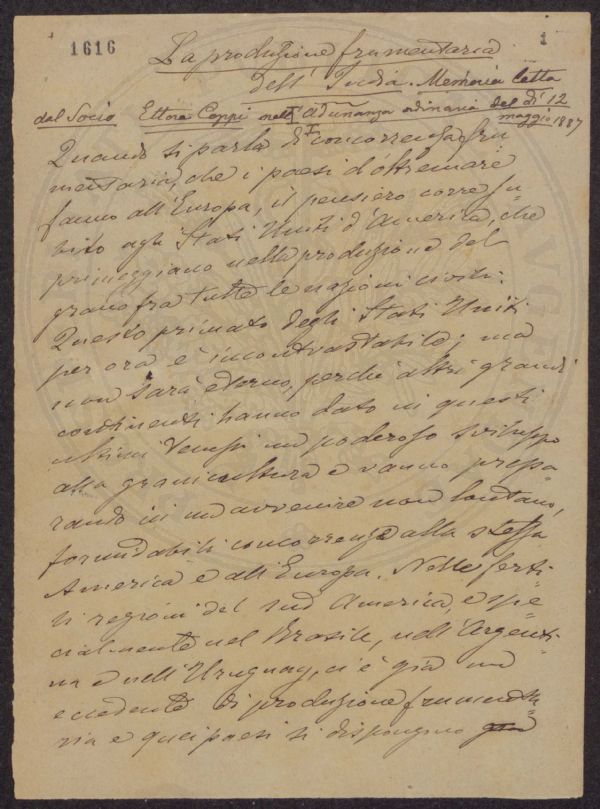 1616
1
La produzione frumentaria
dell' India. Memoria letta
dal Socio Ettore Coppi nell' adunanza ordinaria del dì 12
maggio 1887
I
Quando si parla di concorrenza fru
mentaria, che i paesi d'oltremare
fanno all'Europa, il pensiero corre su
bito agli Stati Uniti d'America, che
primeggiano nella produzione del
grano fra tutte le nazioni civili.
Questo primato degli Stati Uniti
per ora è incontrastabile; ma
non sarà eterno, perchè altri grandi
continenti hanno dato in questi
ultimi tempi un poderoso sviluppo
alla granicultura e vanno prepa
rando in un avvenire non lontano,
formidabili concorrenze alla stessa
America e all'Europa. Nelle ferti-
li regioni del sud America, e spe
cialmente nel Brasile, nell'Argenti-
na e nell'Uruguay, ci è già un
eccedente di produzione frumenta-
ria e quei paesi si dispongono